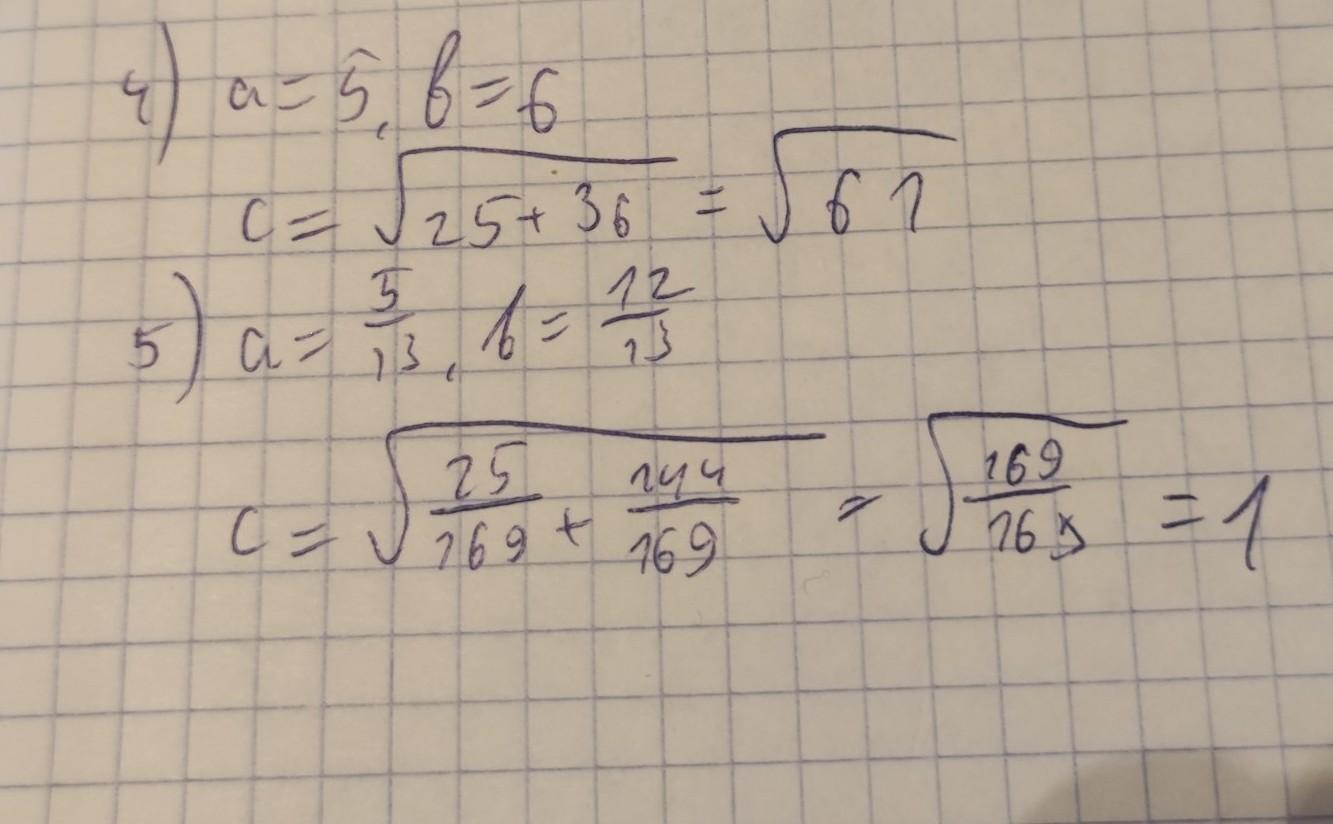 4) a = 5, b = 6
c = √(25 + 36) = √61
5) a = 5/13, b = 12/13
c = √(25/169 + 144/169) = √(169/169) = 1